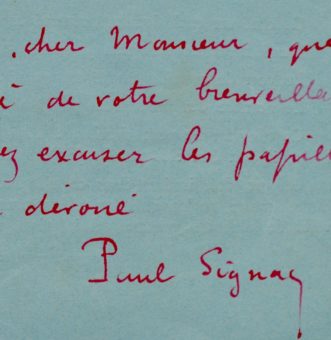 , cher Monsieur, que
é de votre bienveilla
ez excuser les papie
dévoué
Paul Signac